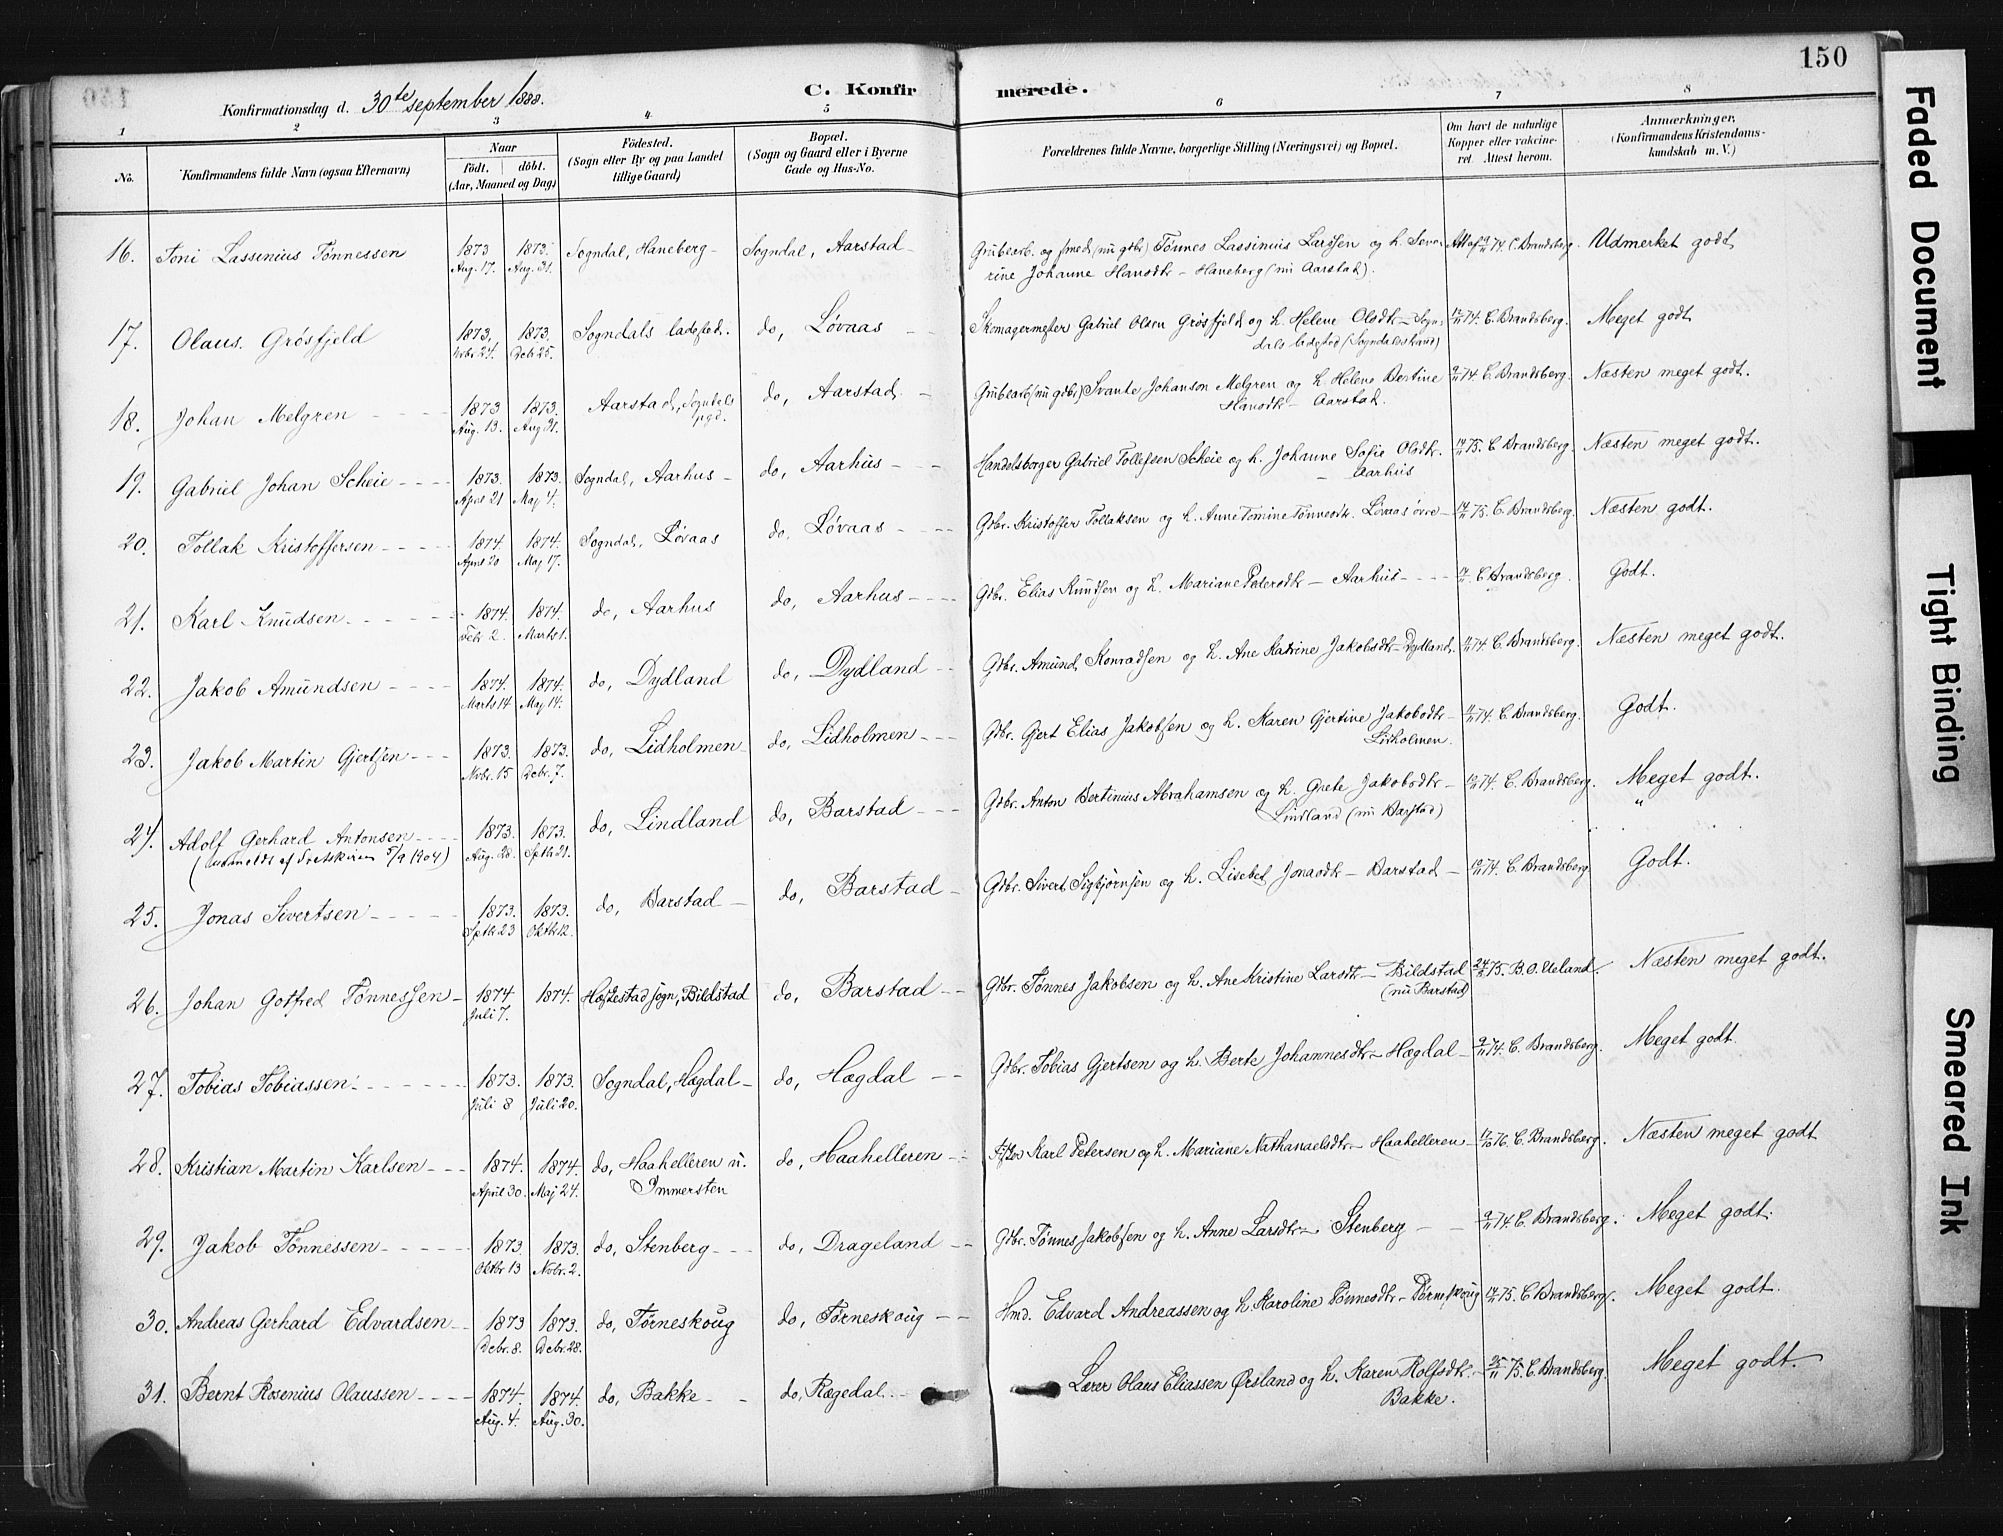 150
Konfirmationsdag d. 30te september 1888.
C. Konfirmerede.
1 2 3 4 5 6 7 8
No.
Konfirmandens fulde Navn (ogsaa Efternavn)
Naar
født. døbt.
(Aar, Maaned og Dag)
Fødested.
(Sogn eller By og paa Landet
tillige Gaard)
Bopæl.
(Sogn og Gaard eller i Byerne
Gade og Hus-No.
Forældrenes fulde Navne, borgerlige Stilling (Næringsvei) og Bopæl.
Om havt de naturlige
Kopper eller vakcine-
ret Attest herom.
Anmærkninger.
(Konfirmandens Kristendoms-
kundskab m. V.)
16. Toni Lassenius Tønnessen 1873 1873. Sogndal, Haneberg Sogndal, Aarstad Grubearb. og smed (nu gdbr) Tønnes Lassinius Larssen og h. Seve- Att af 9/11 74 C. Brandsberg. Udmerket godt
Aug. 17. Aug. 31. rine Johanne Hansdtr - Haneberg (nu Aarstad).
17. Olaus Grøsfjeld 1873. 1873. Sogndals ladested. do, Løvaas Skomagermester Gabriel Olsen Grøsfjeld og h. Helene Olsdtr - Sogn- 74. C. Brandsberg. Meget godt
Nvbr. 24. Debr 25. dals ladested (Sogndalsstrand)
18. Johan Melgren 1873 1873. Aarstad, Sogndals do, Aarstad Grubearb (nu gdbr) Svante Johanson Melgren og h. Helene Bertine 9/11 74. C. Brandsberg. Næsten meget godt.
Aug. 13. Aug 31. pgd. Hansdtr - Aarstad.
19. Gabriel Johan Scheie 1873. 1873. Sogndal, Aarhus do, Aarhus Handelsborger Gabriel Tollefsen Scheie og h. Johanne Sofie Olsdtr. 75. C. Brandsberg. Næsten meget godt.
April 21 Maj 4. - Aarhus
20. Tollak Kristoffersen 1874. 1874. Sogndal, Løvaas do, Løvaas Gdbr. Kristoffer Tollaksen og h. Anne Tomine Tønnesdtr. Løvaas øvre 75. C. Brandsberg. Næsten godt.
April 20 Maj 17.
21. Karl Knudsen 1874. 1874. do, Aarhus do, Aarhus Gdbr. Elias Knudsen og h. Mariane Pedersdtr - Aarhus C. Brandsberg. Godt.
Febr 2. Marts 1.
22. Jakob Amundsen 1874. 1874. do, Dydland do, Dydland Gdbr. Amund Konradsen og h. Ane Katrine Jakobsdtr - Dydland. 74. C. Brandsberg. Næsten meget godt.
Marts 14 Maj 14.
23. Jakob Martin Gjertsen 1873. 1873. do, Lidholmen do, Lidholmen Gdbr. Gjert Elias Jakobsen og h. Karen Gjertine Jakobsdtr - 74. C. Brandsberg. Godt.
Nvbr. 15 Debr. 7. Lidholmen.
24. Adolf Gerhard Antonsen 1873. 1873. do, Lindland do, Barstad Gdbr. Anton Bertinius Abrahamsen og h. Grete Jakobsdtr - 74. C. Brandsberg. Meget godt.
(udmeldt af Statskirken 5/9 1904) Aug. 28. Sptb 21. Lindland (nu Barstad) "
25. Jonas Sivertsen 1873. 1873. do, Barstad do, Barstad Gdbr. Sivert Sigbjørnsen og h. Lisebet Jonasdtr - Barstad 74. C. Brandsberg Godt.
Sptb 23 Oktb 12.
26. Johan Gotfred Tønnessen 1874 1874. Hæskestad sogn, Bildstad do, Barstad Gdbr. Tønnes Jakobsen og h. Ane Kristine Larsdtr - Bildstad 75. B. O. Ueland. Næsten meget godt.
Juli 7. (nu Barstad)
27. Tobias Tobiassen 1873. 1873. Sogndal, Hægdal do, Hægdal Gdbr. Tobias Gjertsen og h. Berte Johannesdtr - Hægdal 9/11 74. C. Brandsberg. Meget godt.
Juli 8 Juli 20.
28. Kristian Martin Karlsen 1874. 1874. do, Haahelleren u. do, Haahelleren Karl Petersen og h. Mariane Nathanaelsdtr - Haahelleren 76. C. Brandsberg. Næsten meget godt
April 30. Maj 24. Immersten
29. Jakob Tønnessen 1873. 1873. do, Stenberg do, Drageland Gdbr. Tønnes Jakobsen og h. Anne Larsdtr - Stenberg 9/11 74. C. Brandsberg. Meget godt.
Oktbr 13 Novbr. 2.
30. Andreas Gerhard Edvardsen 1873 1873. do, Tørneskoug do, Tørneskoug Hmd. Edvard Andreassen og h. Karoline Tønnesdtr - Tørneskoug 75. C. Brandsberg. Meget godt.
Debr. 8. Debr. 28.
31. Bernt Rosenius Olaussen 1874. 1874. do, Bakke do, Rægedal Lærer Olaus Eliassen Ørsland og h. Karen Rolfsdtr. 75. C. Brandsberg. Meget godt.
Aug. 4. Aug. 30. Bakke.
Faded Document
Tight Binding
Smeared Ink